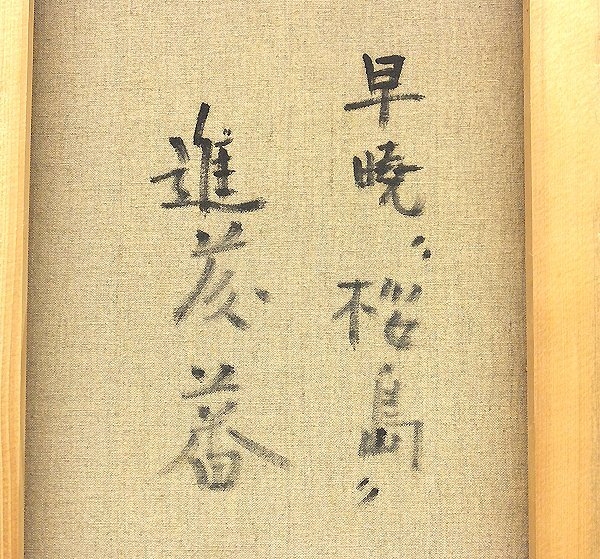 早暁“桜島”
進藤蕃